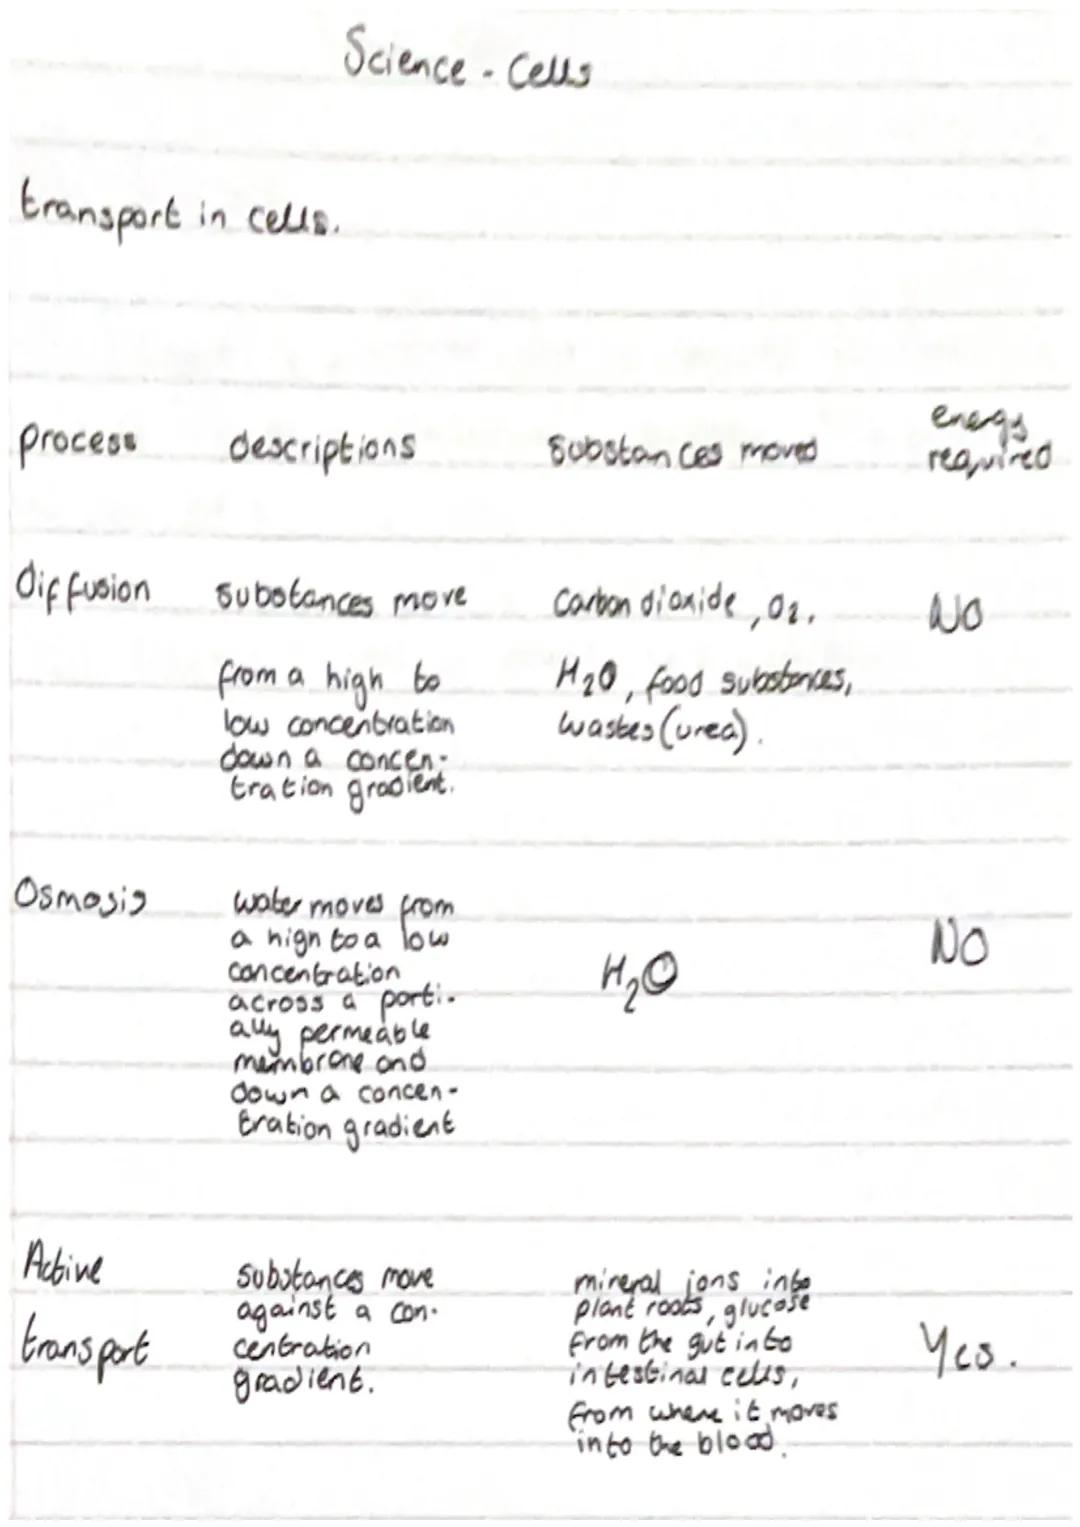 Science - Cells
transport in cells.
process descriptions substances moved energy required
diffusion substances move carbon dioxide, O2,
NO
from a high to
H2O, food substances,
low concentration
wastes (urea).
down a concen-
tration gradient.
Osmosis water moves from
a high to a low
concentration
H2O
NO
across a parti-
ally permeable
membrane and
down a concen-
tration gradient
Active
transport
substances move
against a con-
centration
gradient.
mineral ions into
plant roots, glucose
from the gut into
intestinal cells,
from where it moves
into the blood.
Yes.